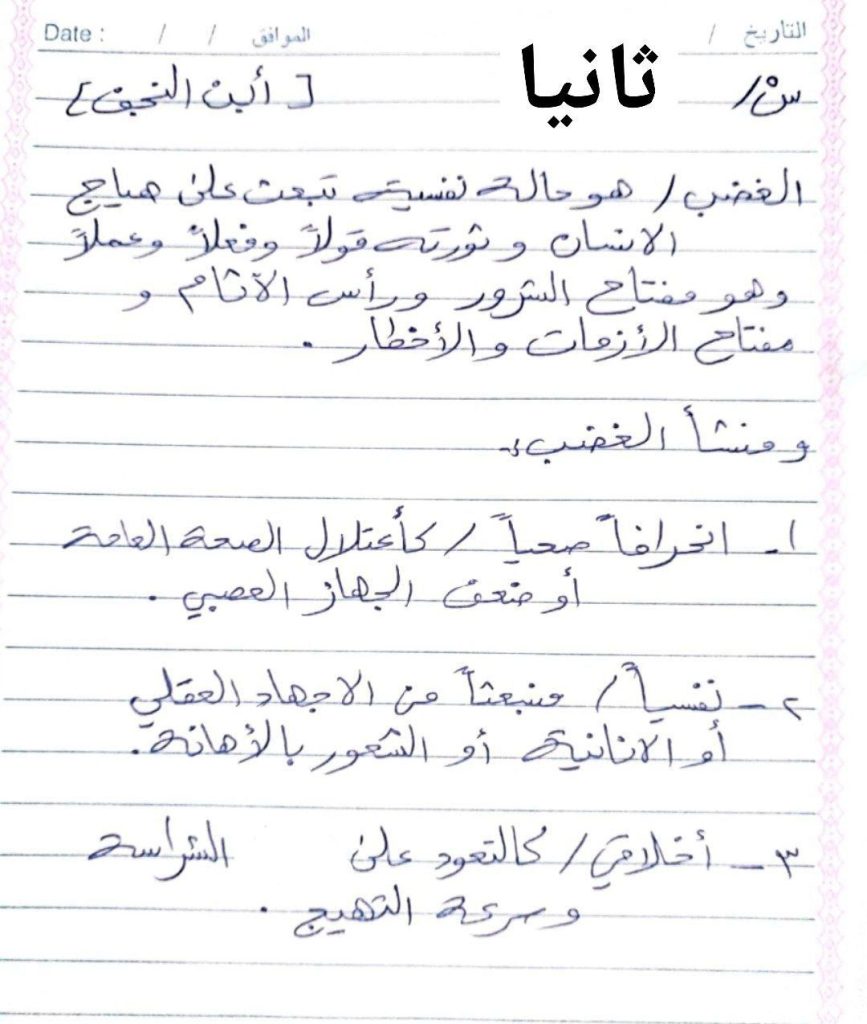 التاريخ / / / الموافق / / Date :
س/ ثانيا [ أين النجف ]
الغضب / هو حالة نفسية تبعث على هياج
الانسان وثورته قولاً وفعلاً وعملاً
وهو مفتاح الشرور ورأس الآثام و
مفتاح الأزمات والأخطار .
ومنشأ الغضب :-
١- انحرافاً صحياً / كأعتلال الصحة العامة
أو ضعف الجهاز العصبي .
٢- نفسياً / منبعثاً من الاجهاد العقلي
أو الانانية أو الشعور بالأهانة .
٣- أخلاقي / كالتعود على الشراسة
وسرعة التهيج .